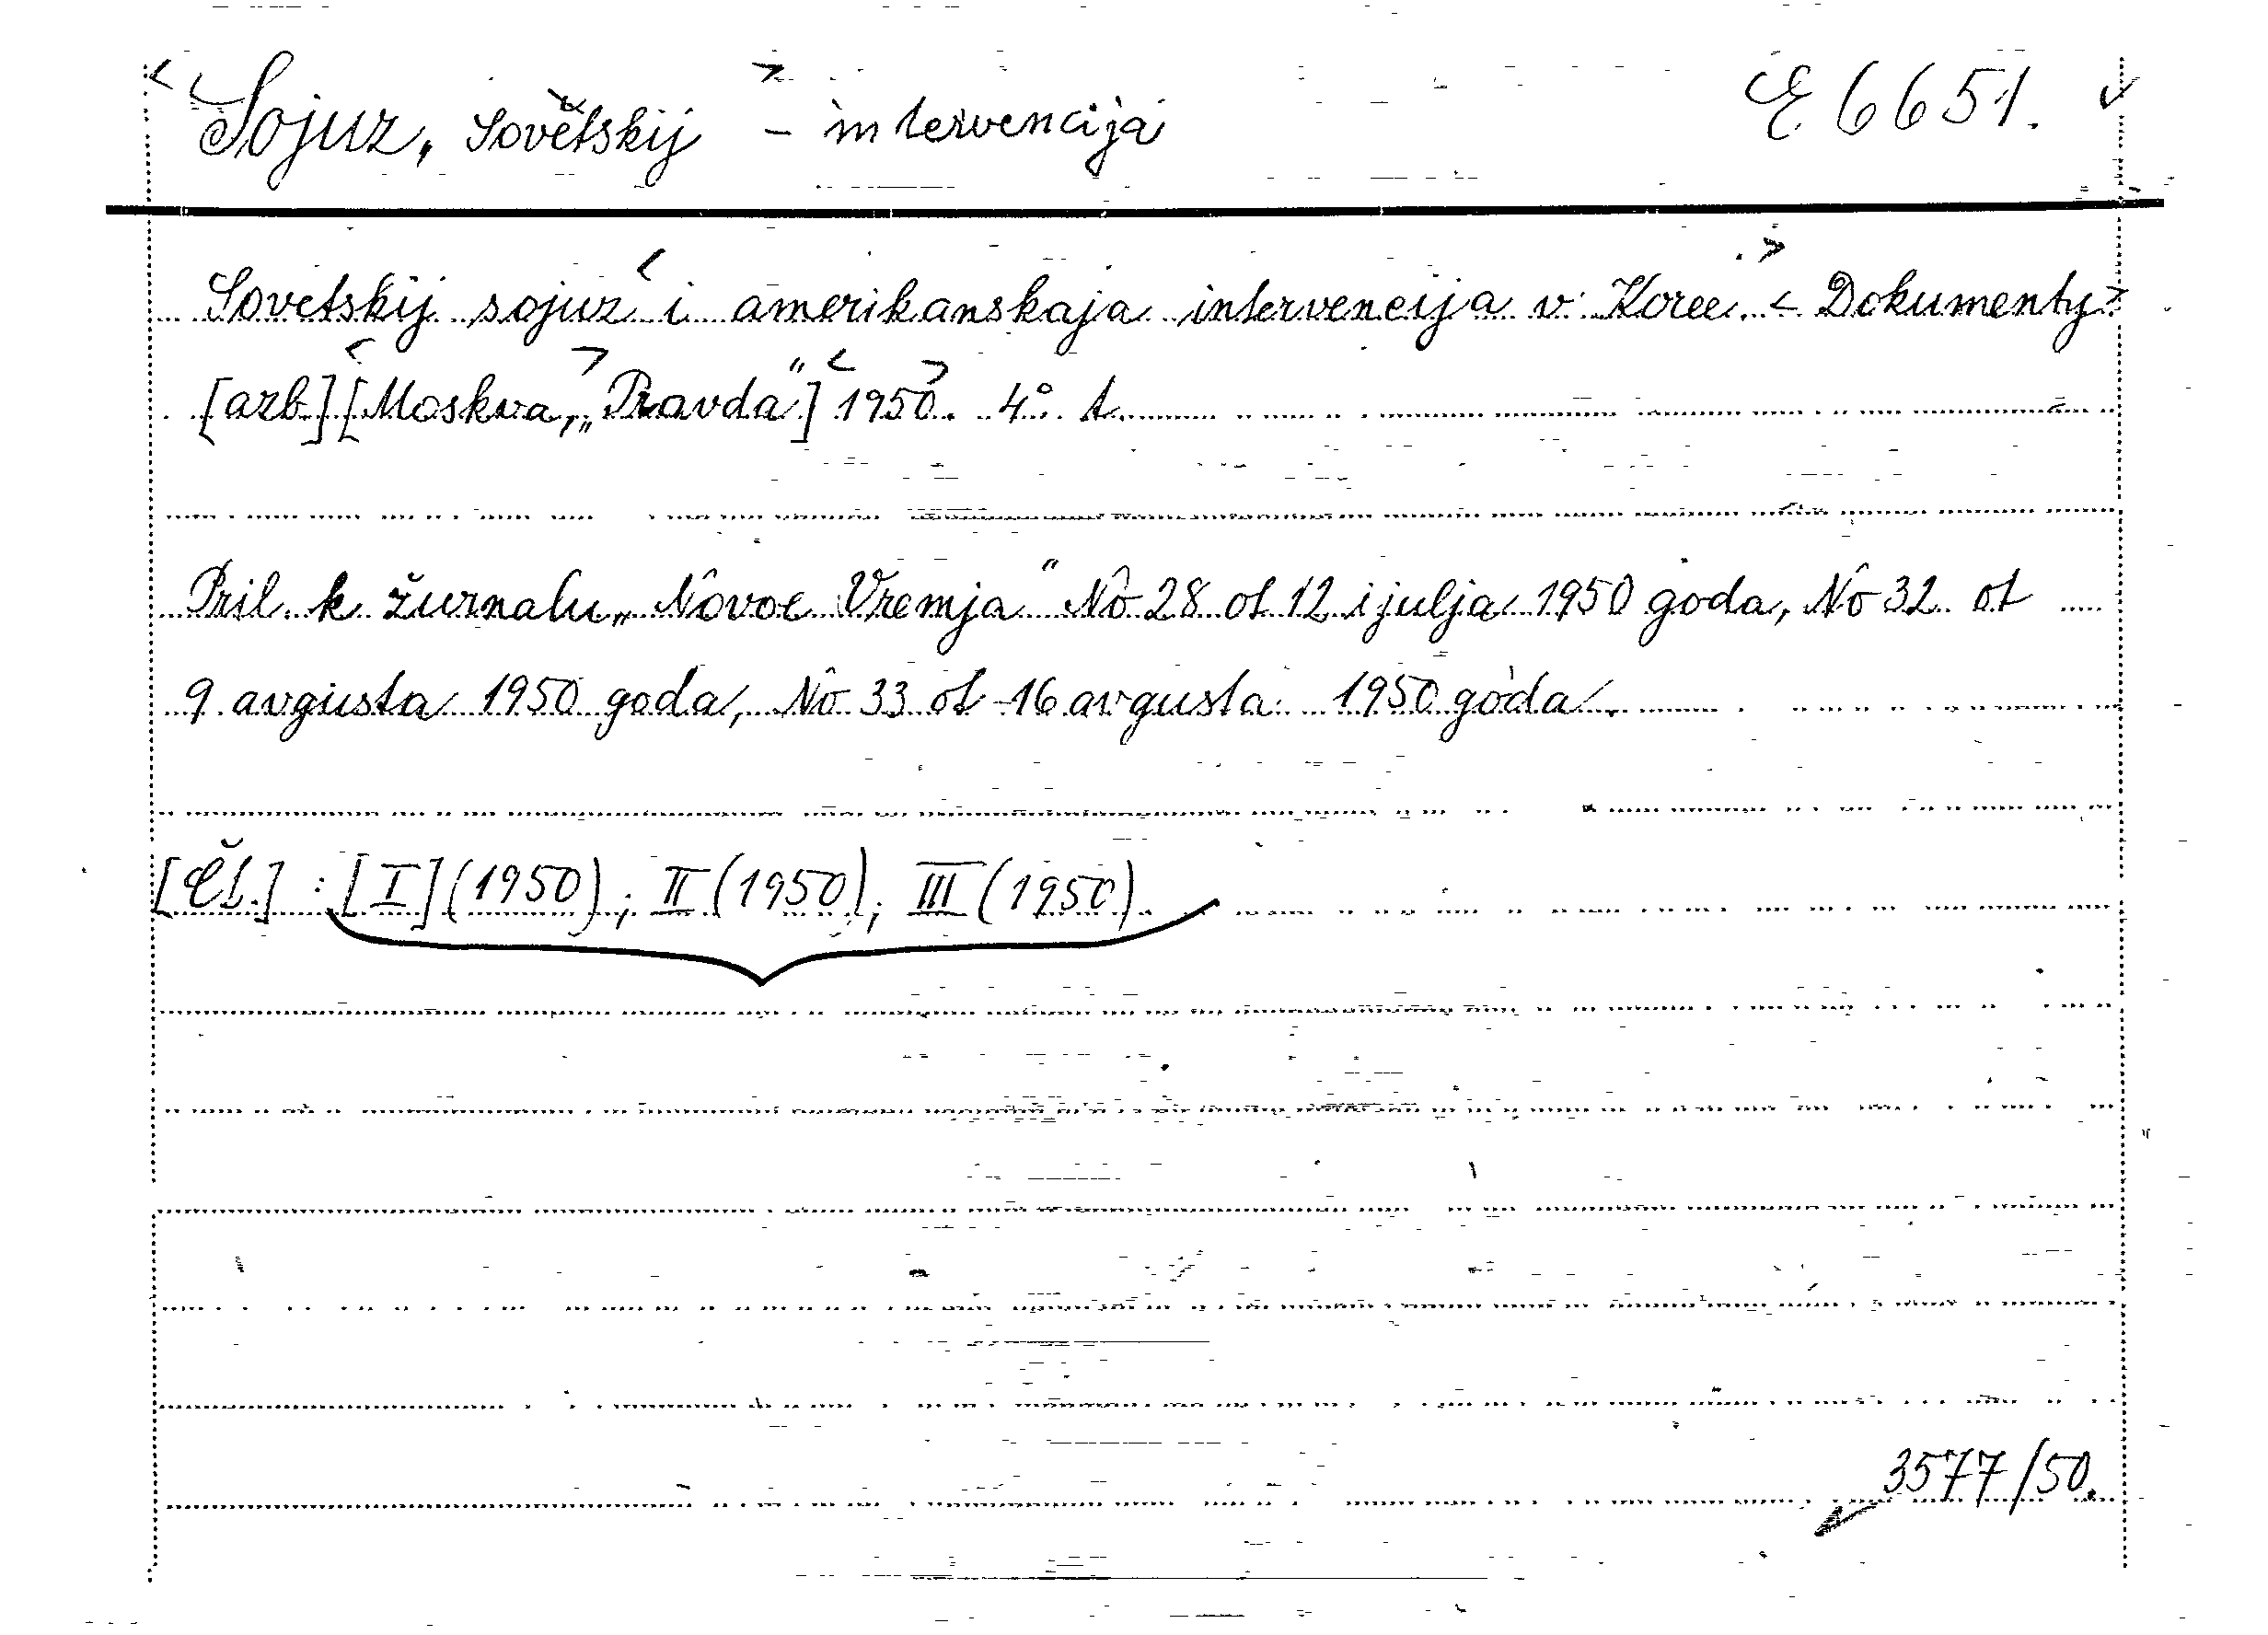 Sojuz, Sovětskij - intervencija E 6651.
Sovetskij sojuz i amerikanskaja intervencija v Koree. < Dokumenty>
[azb] [Moskva, „Pravda"] 1950. 4°. t.
Pril. k žurnalu „Novoe Vremja" No 28 ot 12 ijulja 1950 goda, No 32 ot
9 avgusta 1950 goda, No 33 ot 16 avgusta 1950 goda.
[Čl.] : [I] (1950); II (1950); III (1950).
3577/50.